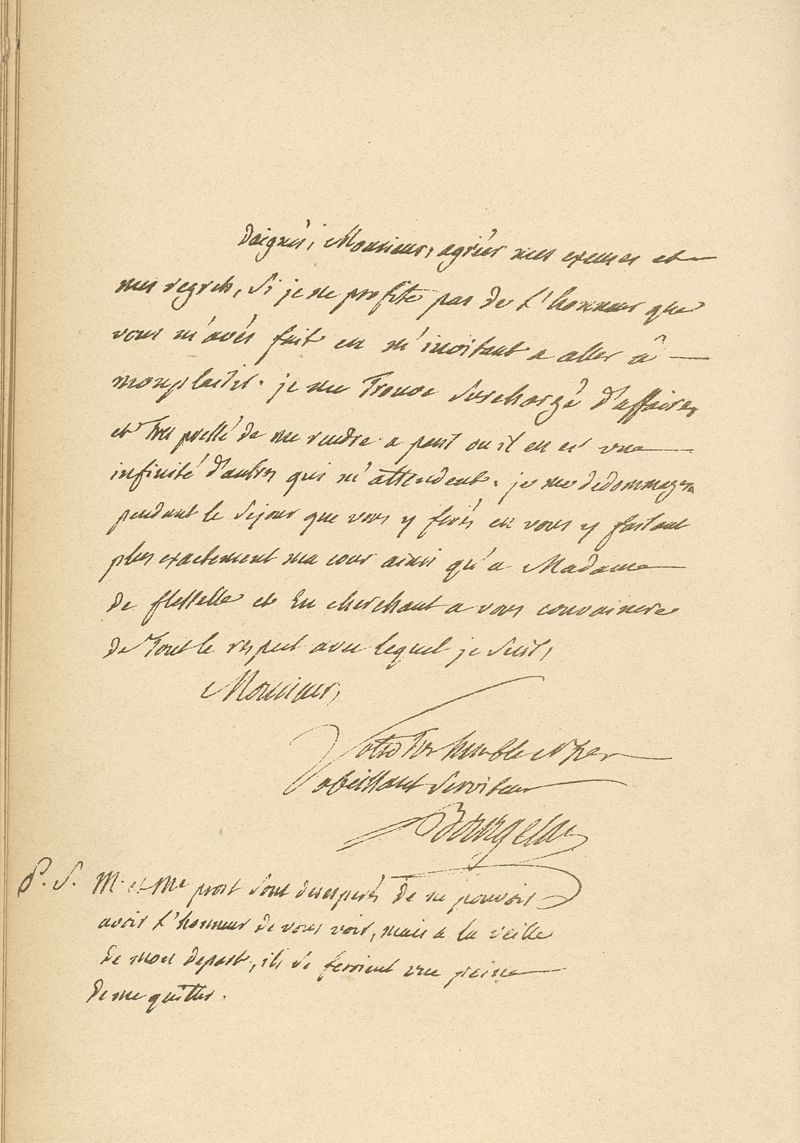 Daignés, Monsieur, agréer mes excuses et
mes regrets, si je ne profite pas de l'honneur que
vous m'avés fait en m'invitant a aller à
monplaisir. je me trouve surchargé d'affaires
et tres pressé de me rendre a paris ou il en est une
infinité d'autres qui m'attendent. je me dedommagerai
pendant le sejour que vous y ferés en vous y faisant
plus exactement ma cour ainsi qu'a Madame
de flesselle et En cherchant a vous convaincre
de tout le respect avec lequel je suis,
Monsieur,
Votre tres humble et tres
obéissant serviteur
Bourgelat
P. S. M. et Me prost sont desesperés de ne pouvoir
avoir l'honneur de vous voir, mais a la veille
de mon depart, ils se feroient une peine
de me quitter.